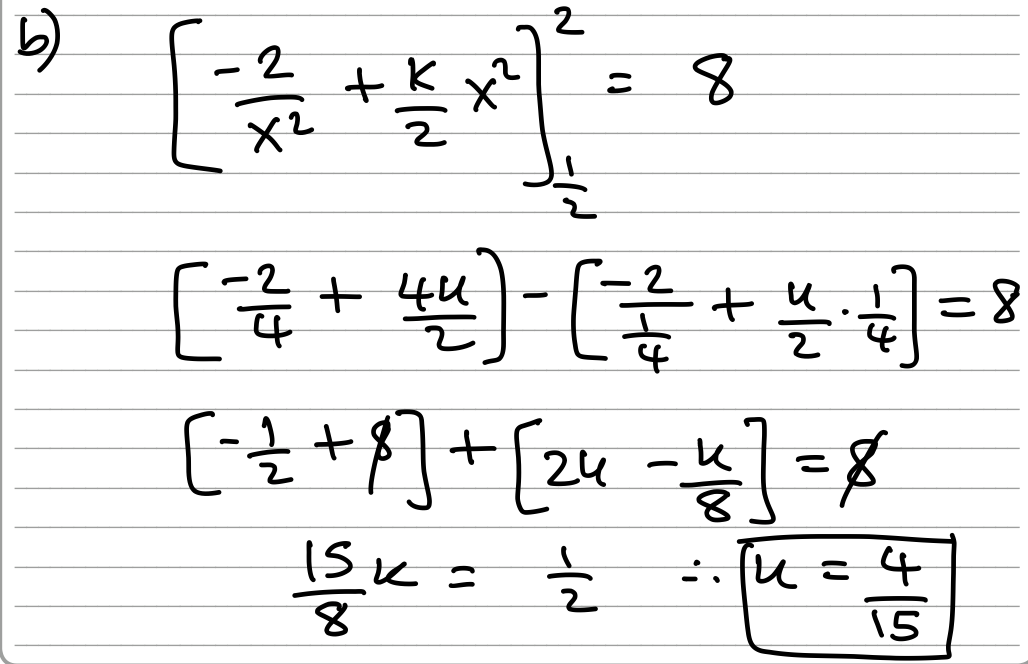 b) [-2/x² + k/2 x²]_{1/2}^{2} = 8
[-2/4 + 4k/2] - [-2/(1/4) + k/2 · 1/4] = 8
[-1/2 + 8] + [2k - k/8] = 8
15/8 k = 1/2 ∴ k = 4/15